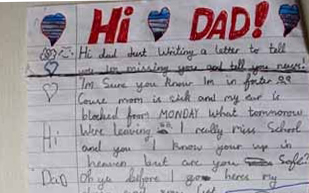 Hi DAD!
Hi dad Just Writing a letter to tell
you Im missing you and tell you news!
I'm Sure you know Im in foster
Couse mom is sick and my ear is
blocked from MONDAY What tommorow
Hi Were leaving I really miss School
and you I know your up in
heaven but are you Safe?
Dad Oh ya before I go heres my